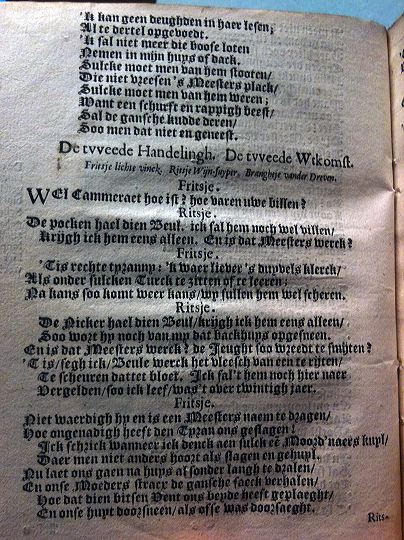 'K kan geen deughden in haer lesen;
Al te dertel opgevoedt.
'K sal niet meer die boose loten
Nemen in mijn huys of dack.
Sulcke moet men van hem stooten/
Die niet vreesen 's Meesters plack/
Sulcke moet men van hem weren;
Want een schurft en rappigh beest/
Sal de gansche kudde deren/
Soo men dat niet en geneest.
De tvveede Handelingh. De tvveede Wtkomst.
Fritsje lichte vinck, Ritsje Wijn-suyper, Branghtje vander Dreven.
Fritsje.
WEl Cammeraet hoe ist? hoe varen uwe billen?
Ritsje.
De pocken hael dien Beul, ick sal hem noch wel villen/
Krijgh ick hem eens alleen. En is dat Meesters werck?
Fritsje.
'Tis rechte tyranny: 'k waer liever 's duyvels klerck/
Als onder sulcken Turck te zitten of te leeren;
Na kans soo komt weer kans/wy sullen hem wel scheren.
Ritsje.
De Nicker hael dien Beul/krijgh ick hem eens alleen/
Soo wort hy noch van my dat backhuys opgesneen.
En is dat Meesters werck? de Jeught soo wreedt te smijten?
'T is/segh ick/Beule werck het vleesch van een te rijten/
Te scheuren datter bloet. Ick sal't hem noch hier naer
Vergelden/soo ick leef/was't over twintigh jaer.
Fritsje.
Niet waerdigh hy en is een Meesters naem te dragen/
Hoe ongenadigh heeft den Tyran ons geslagen!
Ick schrick wanneer ick denck aen sulck eē Moord'naers kuyl/
Daer men niet anders hoort als slagen en gehuyl.
Nu laet ons gaen na huys al sonder langh te dralen/
En onse Moeders stracx de gansche saeck verhalen/
Hoe dat dien bitsen Vent ons beyde heeft geplaeght/
En onse huyt doorsneen/als ofse was doorsaeght.
Rits-